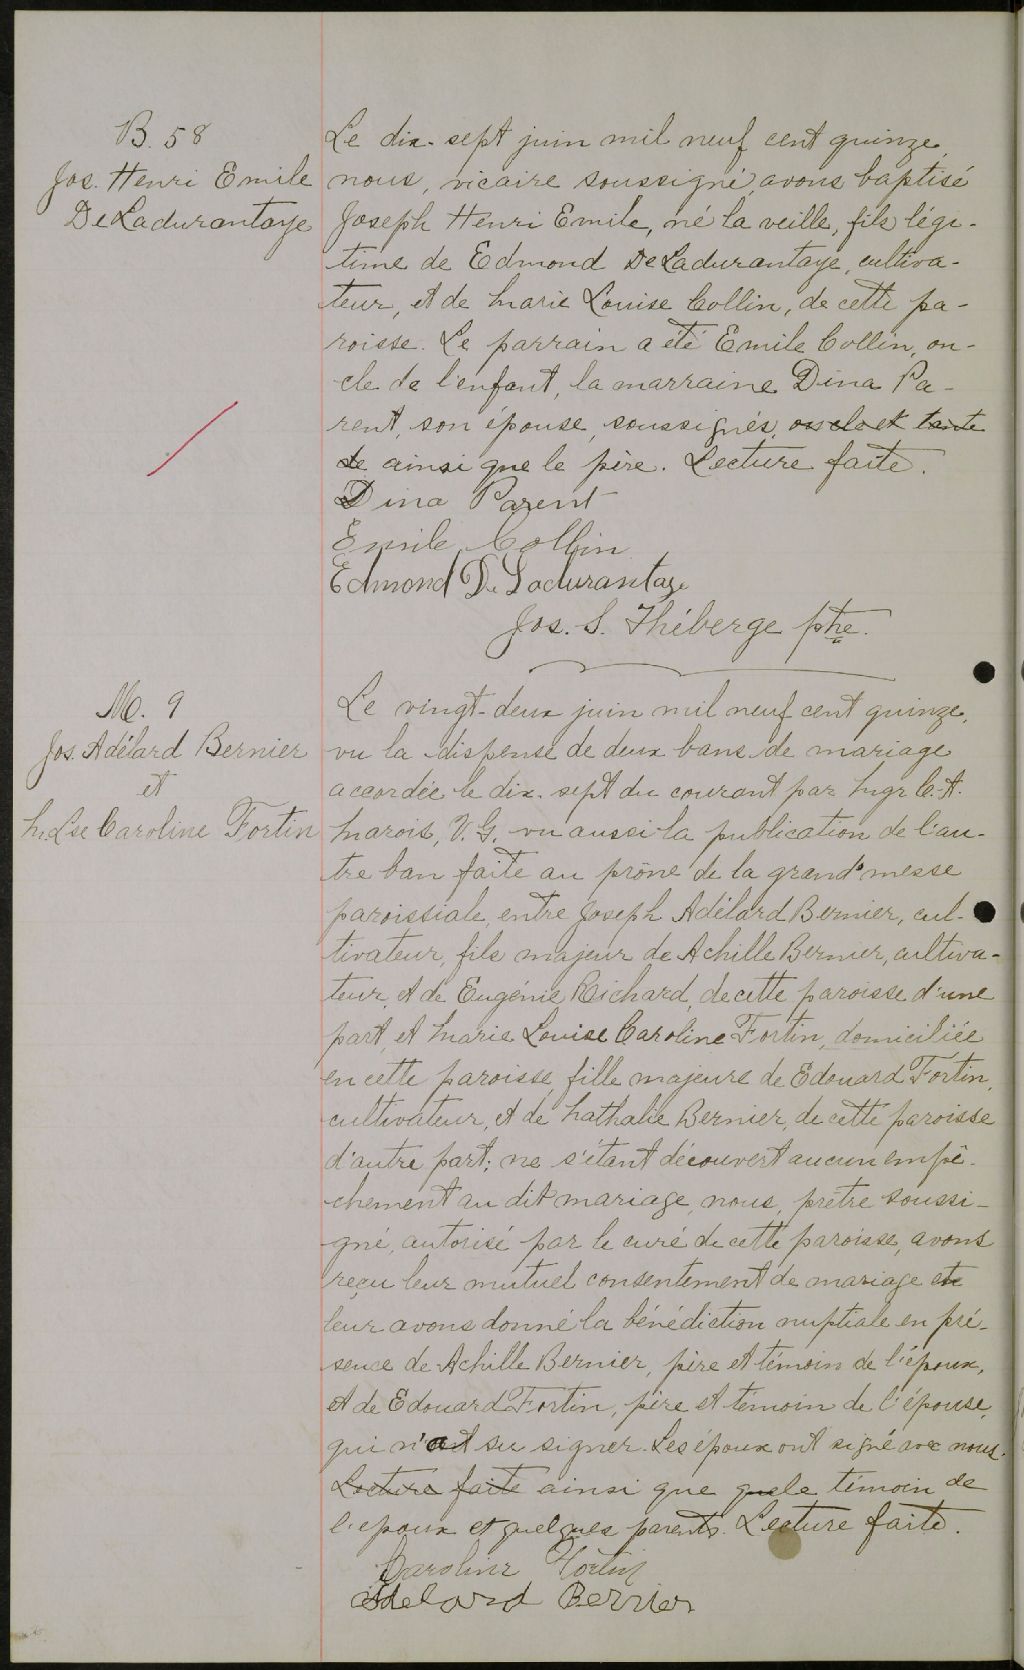 B. 58
Jos. Henri Emile
DeLadurantaye
Le dix-sept juin mil neuf cent quinze,
nous, vicaire soussigné, avons baptisé
Joseph Henri Emile, né la veille, fils légi-
time de Edmond DeLadurantaye, cultiva-
teur, et de Marie Louise Collin, de cette pa-
roisse. Le parrain a été Emile Collin, on-
cle de l'enfant, la marraine Dina Pa-
rent, son épouse, soussignés, oncle et tante
de ainsi que le père. Lecture faite.
Dina Parent
Emile Collin
Edmond De Ladurantaye
Jos. S. Théberge ptre.
M. 9
Jos. Adélard Bernier
et
M. Lse Caroline Fortin
Le vingt-deux juin mil neuf cent quinze,
vu la dispense de deux bans de mariage
accordée le dix-sept du courant par Mgr C.-A.
Marois, V. G., vu aussi la publication de l'au-
tre ban faite au prône de la grand'messe
paroissiale, entre Joseph Adélard Bernier, cul-
tivateur, fils majeur de Achille Bernier, cultiva-
teur, et de Eugénie Richard, de cette paroisse d'une
part, et Marie Louise Caroline Fortin, domiciliée
en cette paroisse, fille majeure de Edouard Fortin,
cultivateur, et de Nathalie Bernier, de cette paroisse
d'autre part; ne s'étant découvert aucun empê-
chement au dit mariage, nous, prêtre soussi-
gné, autorisé par le curé de cette paroisse, avons
reçu leur mutuel consentement de mariage et
leur avons donné la bénédiction nuptiale en pré-
sence de Achille Bernier, père et témoin de l'époux,
et de Edouard Fortin, père et témoin de l'épouse,
qui n'a su signer. Les époux ont signé avec nous.
Lecture faite ainsi que le témoin de
l'époux et quelques parents. Lecture faite.
Caroline Fortin
Adelard Bernier